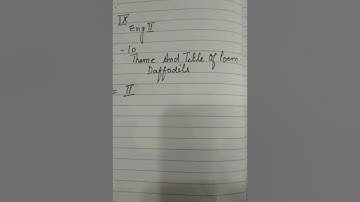 IX
Eng II
- 10
Theme And Title Of Poem
Daffodils
= II